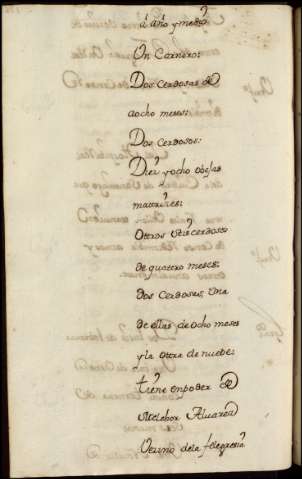 à año y medio
Un Carnero:
Dos Cerdosas de
aocho meses:
Dos Cerdosos:
Diez y ocho obejas
matrizes:
Otteros seis cerdosos
de quattro meses:
dos Cerdosas, Una
de ellas de ocho meses
y la otra de nuebe:
tiene enpoder de
Melchor Alvarez
Vezino dela felegresia